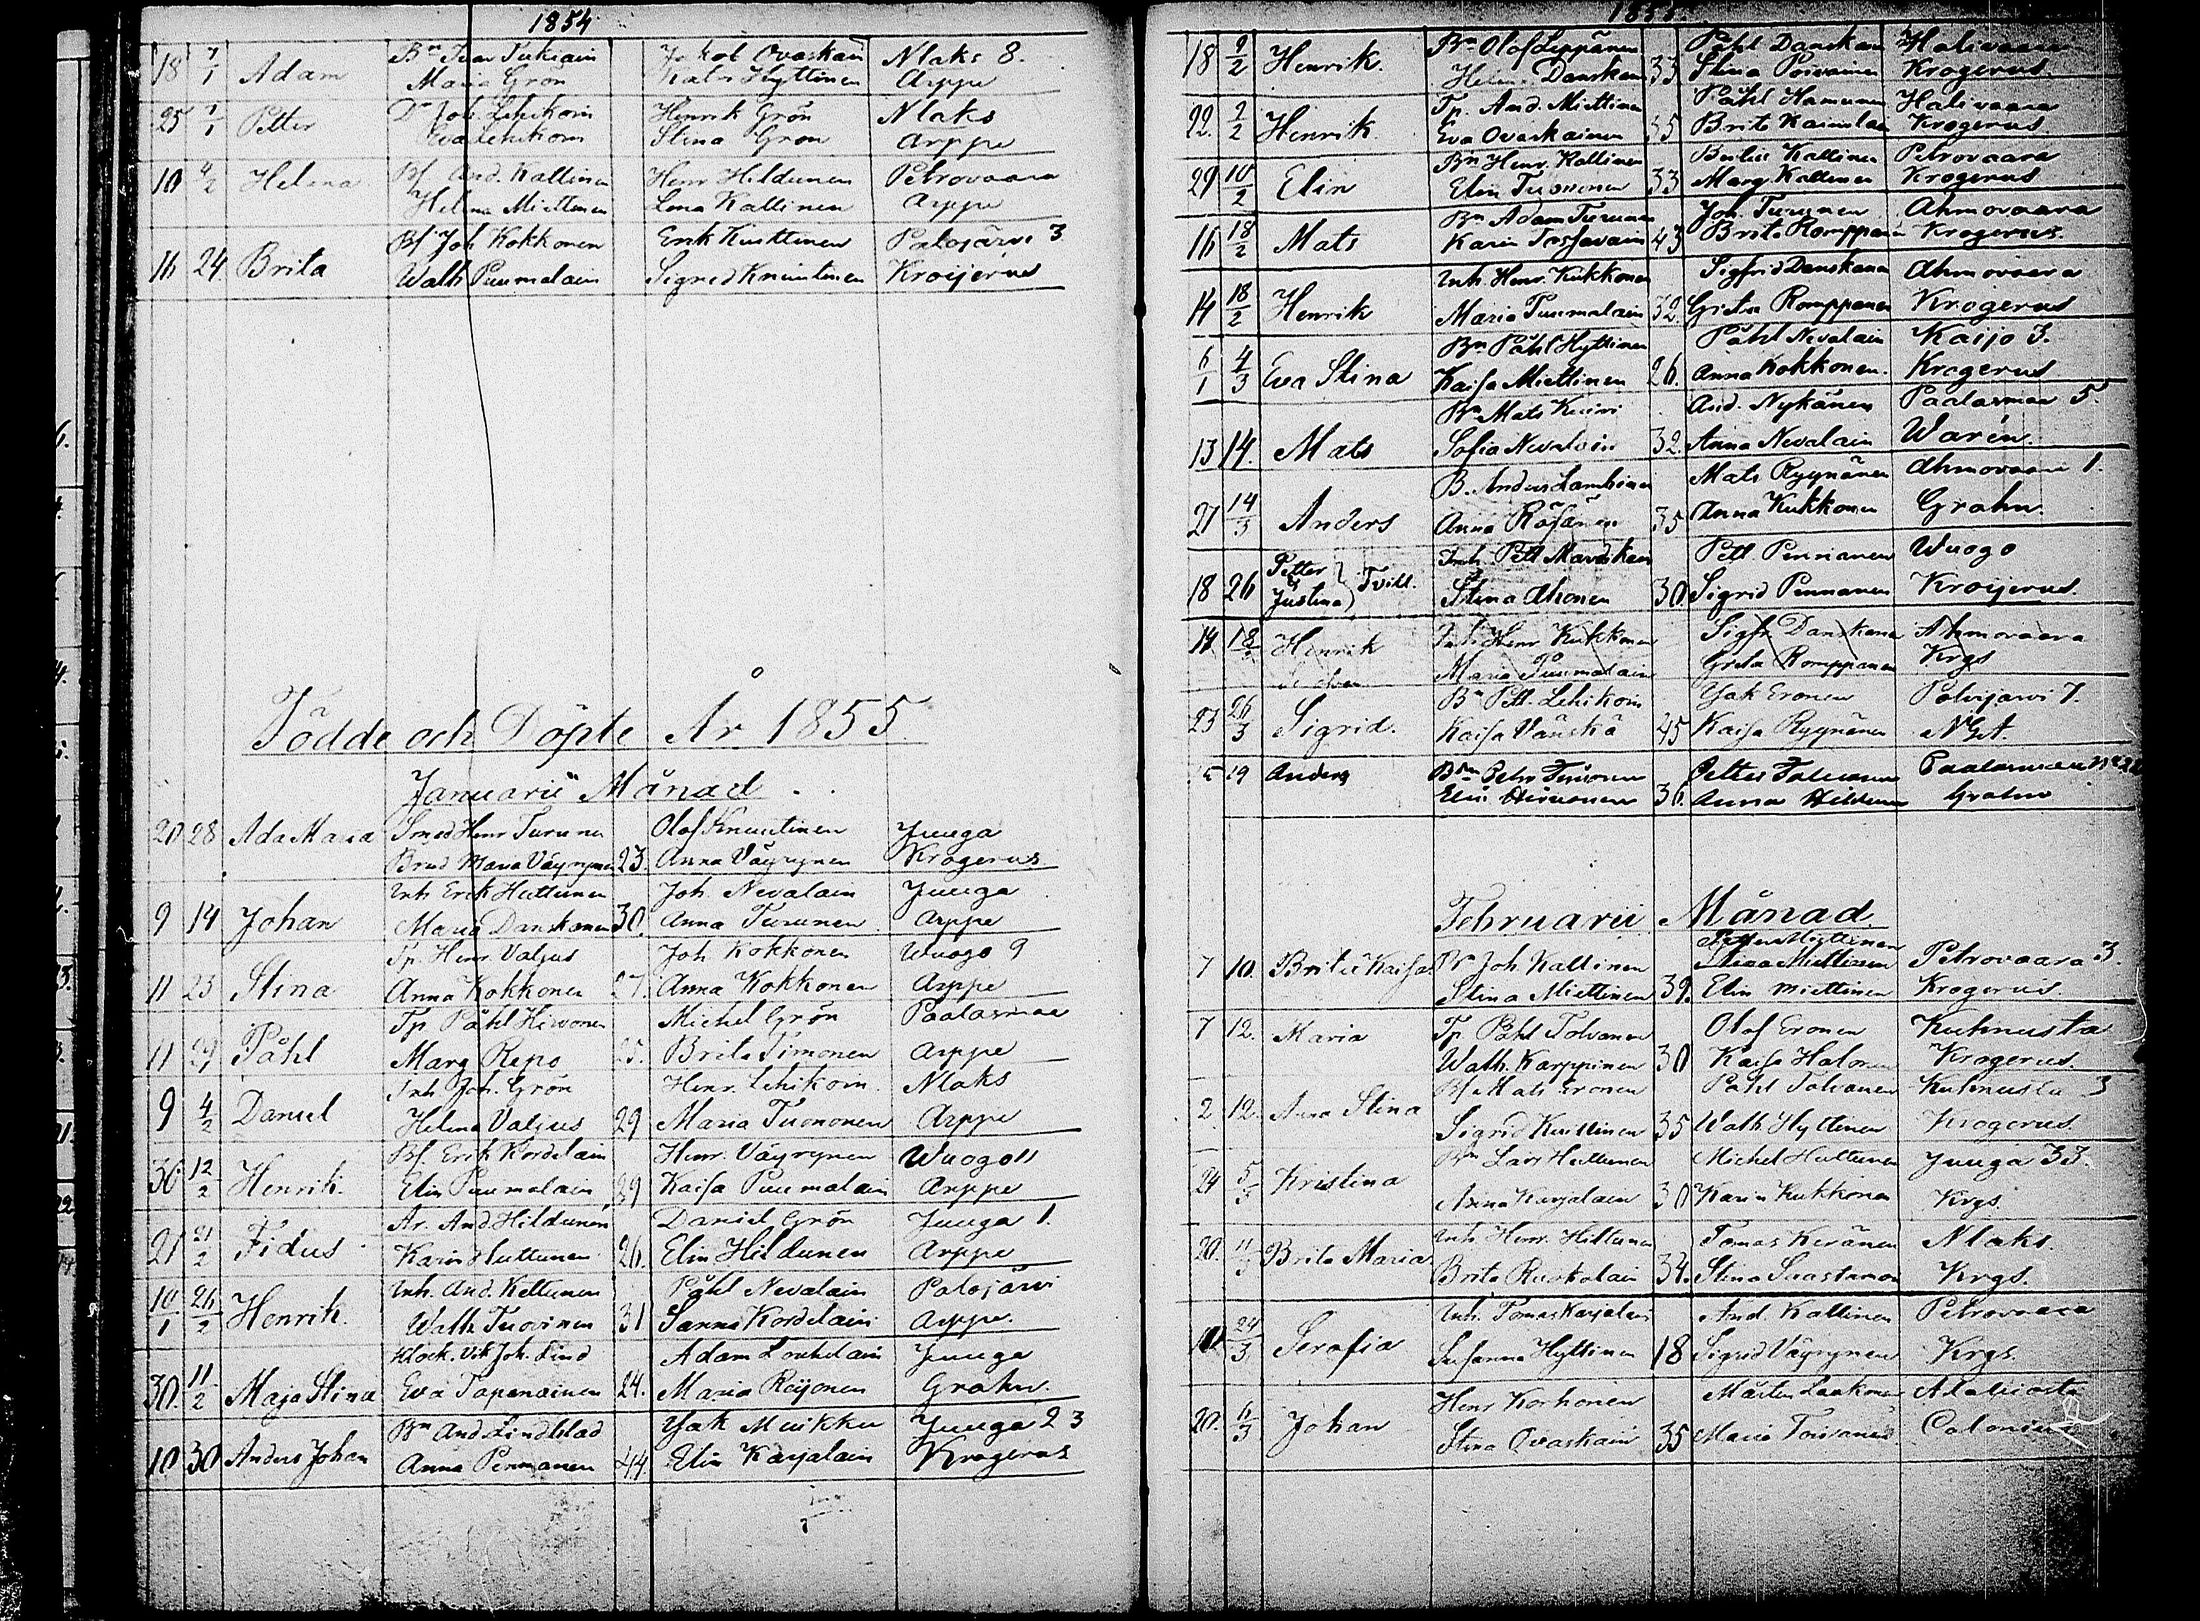 1854
18 7/1 Adam Bn Ivar Jakob Ovaskain Nlaks 8.
Maria Grön Hyttinen Arppe
25 7/1 Petter Joh. Lehikoin Henrik Grön Nlaks
Eva Lehikoin Stina Grön Arppe
10 4/2 Helena Bf. And. Kallinen Henr. Hildunen Petrovaara
Helena Miettinen Lena Kallinen Arppe
16 24 Brita Bf Joh Kokkonen Erik Kuittinen Palojärvi 3
Walb Puumalain Sigrid Knuutinen Kroijerus
Födde och Döpte År 1855.
Januarii Månad
20 28 Ada Maria Smed Henr Turunen Olof Knuutinen Juuga
Maria Väyrynen 23. Anna Väyrynen Krogerus
9 14 Johan Inh Erik Huttunen Joh. Nevalain Juuga
Maria Danskanen 30. Anna Turunen Arppe
11 23 Stina Tp. Henr Valjus Joh Kokkonen Wuogo 9
Anna Kokkonen 27. Anna Kokkonen Arppe
11 Påhl Tp Påhl Hirvonen Michel Grön Paalasmaa
Marg Repo 25. Brita Timonen Arppe
9 4/2 Daniel Inh Joh. Grön Henr. Lehikoin Nlaks
Helena Valjus 29 Maria Tuononen Arppe
30 12/2 Henrik. Bf. Erik Kordelain Henr. Väyrynen Wuogo 11
Elin Puumalain 29 Kaisa Puumalain Arppe
21 21/2 Fidus Ar. And. Hildunen Daniel Grön Juuga 1.
Karin Huttunen 26. Elin Hildunen Arppe
10/1 26/2 Henrik. Inh. And. Keltunen Påhl Nevalain Palojärvi
Walb Turvinen 31 Sanna Kordelain Arppe.
30. 11/2 Maja Stina Klock. Vik Joh. Lind Adam Loukolain Juuga
Eva Tapanainen 24. Maria Reijonen Grahn.
10 30 Anders Johan Bn And Lindblad Jak Muikku Juuga 23
Anna Pennanen 44 Elin Karjalain Krogerus
1855.
18 9/2 Henrik. Bn Olof Leppänen Påhl Danskan Halivaara
Helena Danskan 33 Stina Poivainen Krogerus.
22. 9/2 Henrik. Tp. And. Miettinen Påhl Hamunen Halivaara
Eva Ovaskainen 35 Brita Krogerus.
29 10/2 Elin Bn Henr. Kallinen Kallinen Petrovaara
Elin Tuononen 33 Marg Kallinen Krogerus
16 18/2 Mats Bn Adam Turunen Joh. Turunen Ahmovaara
Karin Tossavain 43 Brita Romppanen Krogerus.
14 18/2 Henrik Inh. Henr. Kukkonen Sigfrid Danskanen Ahmovaara
Maria Puumalain 32 Greta Romppanen Krogerus
6/1 4/3 Eva Stina Bn Påhl Hyttinen Påhl Nevalain Kaijo 3.
Kaisa Miettinen 26. Anna Kokkonen. Krogerus
13 14. Mats Bn Mats Kuivi And. Nykänen Paalasmaa 5.
Sofia Nevalain 32. Anna Nevalain Warén.
21 14/3 Anders B. Anders Lambinen Mats Ryynänen Ahmovaara 1.
Anna Räsänen 35 Anna Kukkonen Grahn.
18 26 Petter Justina } Tvill. Inh. Pett Petl Pennanen Wuogo
Stina Ahonen 30. Sigrid Pennanen Kroijerus.
14 18/2 Henrik Inh Henr Kukkonen Sigfr Danskanen Ahmovaara
Maria Puumalain Greta Romppanen Krgs
23 26/3 Sigrid. Bn Pett. Lehikoin Jak Eronen Polvijärvi 7.
Kaisa Vänskä 45 Kaisa Ryynänen
19 Anders Petter Turonen Petter Tolvanen Paalasmaa
Elin Hirvonen 36. Anna Grahn
Februarii Månad
7 10. Brita Kaisa Bn Joh Kallinen Stina Miettinen Petrovaara 3.
Stina Miettinen 39. Elin Miettinen Krogerus.
7 12. Maria Tp Påhl Tolvanen Olof Eronen Kuhnusta
Walb. Karppinen 30 Kaisa Halonen Krogerus.
2 12. Anna Stina Bf Mats Eronen Påhl Tolvanen Kuhnusta 3
Sigrid Kuittinen 35 Walb Hyttinen Krogerus
24 5/3 Kristina Bn Lars Huttunen Michel Huttunen Juuga 33.
Anna Karjalain 30 Karin Kukkonen Krgs.
20. 11/3 Brita Maria Inh. Henr. Hiltunen Tomas Keränen Nlaks.
Brita Ruskolain 34. Stina Krgs.
24/3 Serafia Inh. Tomas Karjalain And. Kallinen Petrovaara
Susanna Hyttinen 18 Sigrid Väyrynen Krgs.
20. 6/3 Johan Henr Korhonen Mårten Laakonen
Stina Ovaskain 35 Maria Colonius